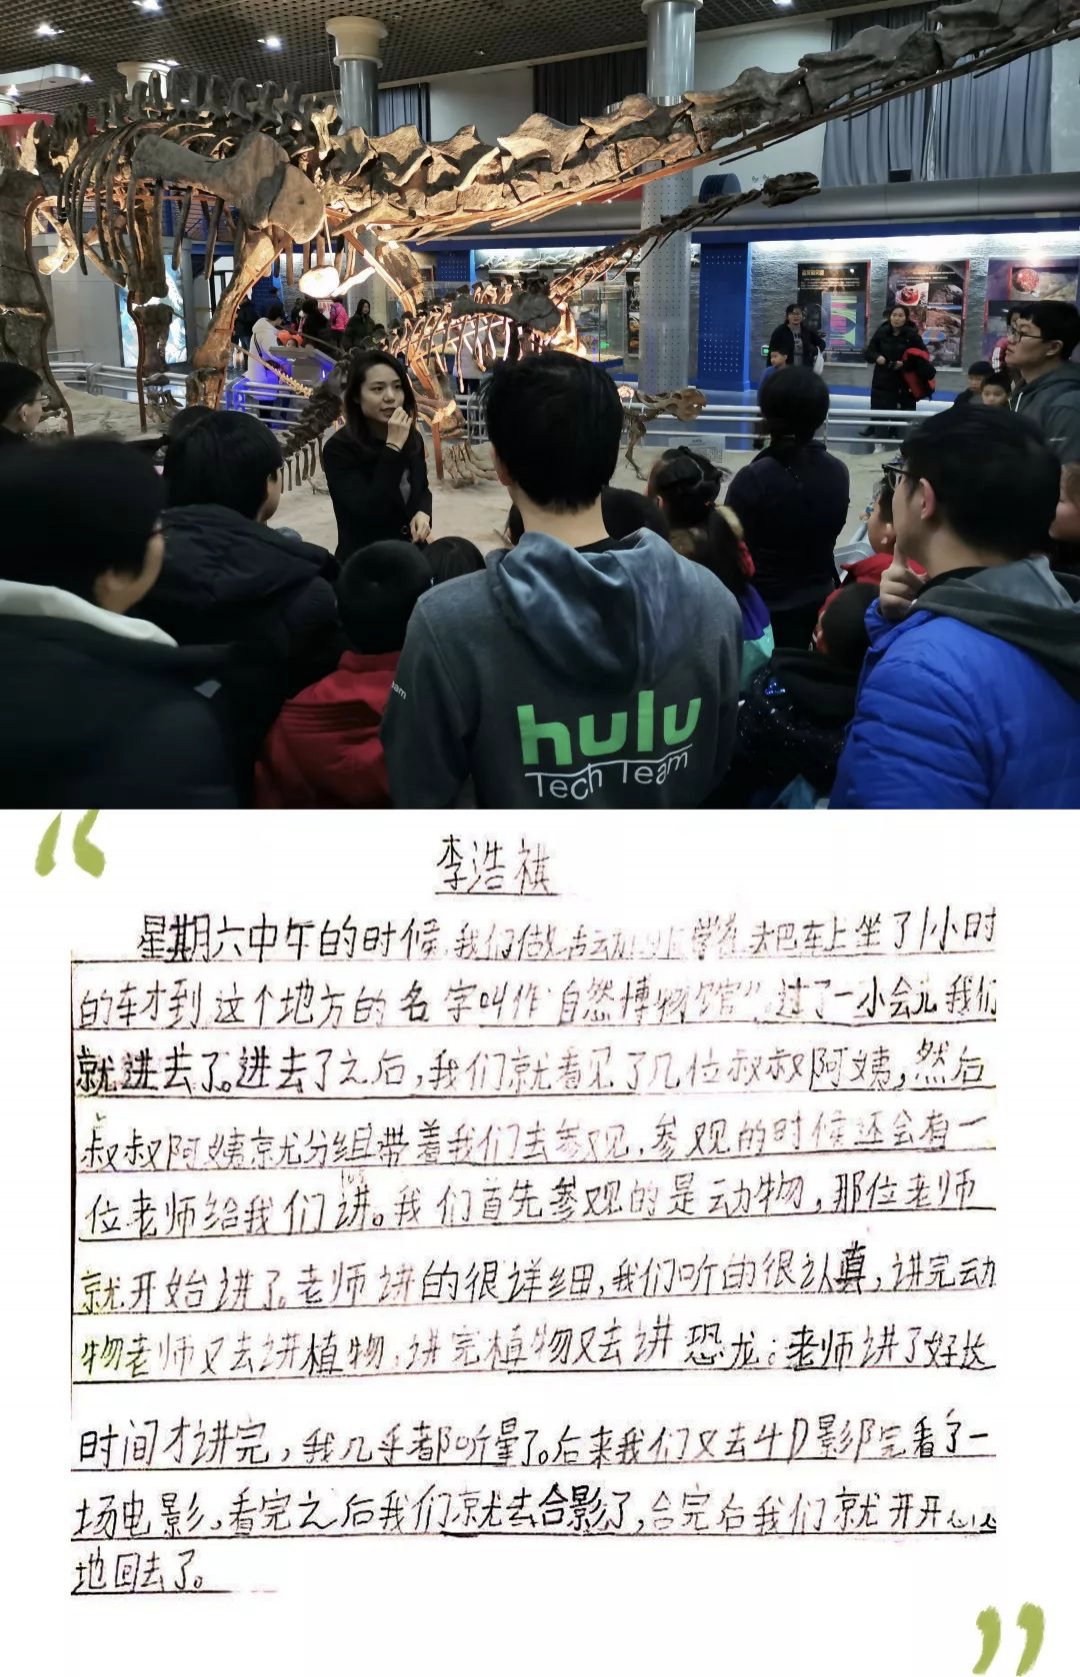 hulu
Tech Team
李浩祺
星期六中午的时候,我们做 去巴车上坐了1小时
的车才到这个地方的名字叫作“自然博物馆”,过了一小会儿我们
就进去了。进去了之后,我们就看见了几位叔叔阿姨,然后
叔叔阿姨就分组带着我们去参观,参观的时候还会有一
位老师给我们讲。我们首先参观的是动物,那位老师
就开始讲了。老师讲的很详细,我们听的很认真,讲完动
物老师又去讲植物,讲完植物又去讲恐龙;老师讲了好长
时间才讲完,我几乎都听晕了。后来我们又去4D影院看了一
场电影。看完之后我们就去合影了,合完后我们就开开心心
地回去了。